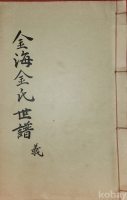 金海金氏世譜
義
kobay